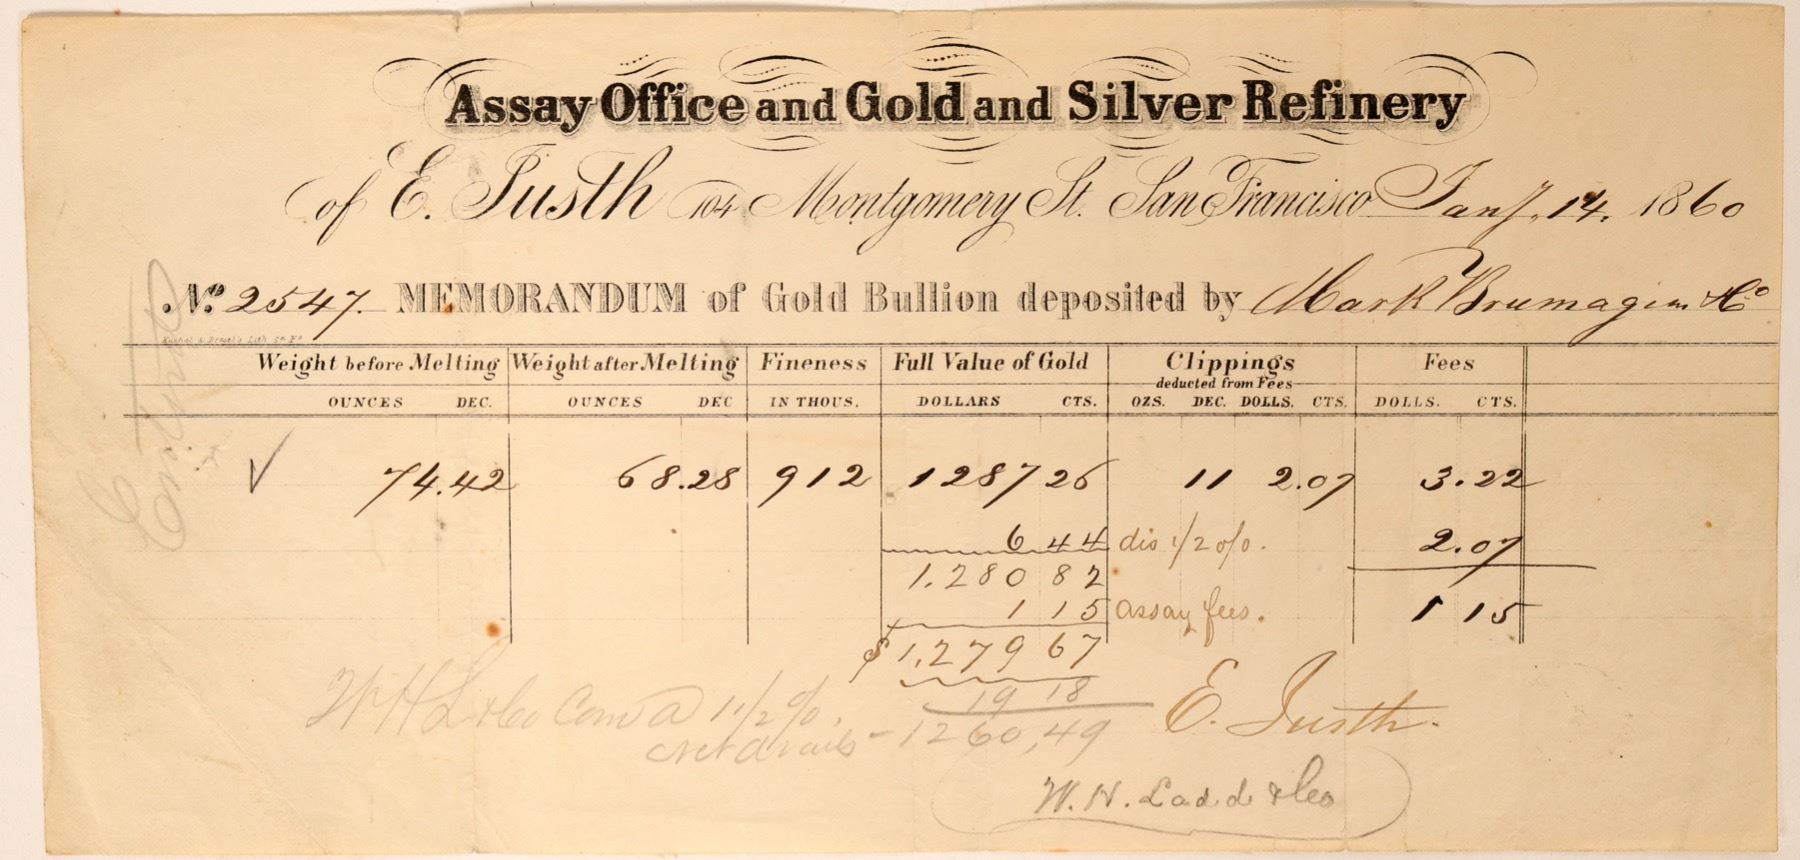 Assay Office and Gold and Silver Refinery
of E. Justh 104 Montgomery St. San Francisco Jany. 14. 1860
No. 2547. MEMORANDUM of Gold Bullion deposited by Mark Brumagim & Co
Weight before Melting Weight after Melting Fineness Full Value of Gold Clippings Fees
deducted from Fees
OUNCES DEC. OUNCES DEC IN THOUS. DOLLARS CTS. OZS. DEC. DOLLS. CTS. DOLLS. CTS.
✓ 74.42 68.28 912 1287 26 11 2.07 3.22
6 44 dis 1/2 o/o. 2.07
1.280 82
1 15 assay fees. 1 15
$1.279 67
W H L & Co Com a 1 1/2 %. 19 18 E. Justh.
1260,49
W. H. Ladd & Co